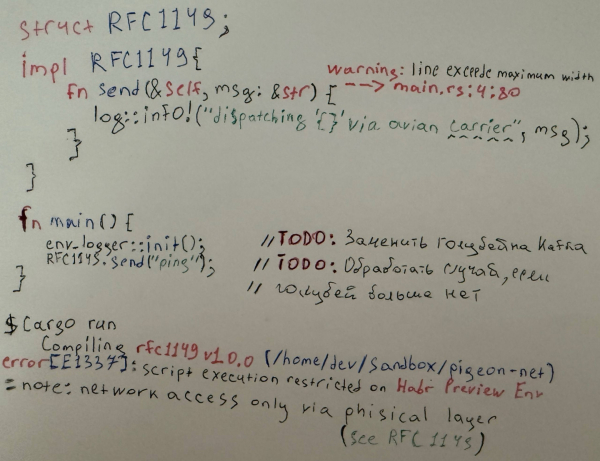 struct RFC1149;
impl RFC1149{
fn send(&self, msg: &str) {
warning: line excede maximum width
---> main.rs:4:80
log::info!("dispatching '{}' via avian carrier", msg);
}
}
fn main() {
env_logger::init();
RFC1149.send("ping");
}
//TODO: Заменить голубей на Kafka
//TODO: Обработать случай, если
// голубей больше нет
$ Cargo run
Compiling rfc1149 v1.0.0 (/home/dev/Sandbox/pigeon-net)
error[E1337]: script execution restricted on Habr Preview Env
= note: network access only via phisical layer
(see RFC 1149)